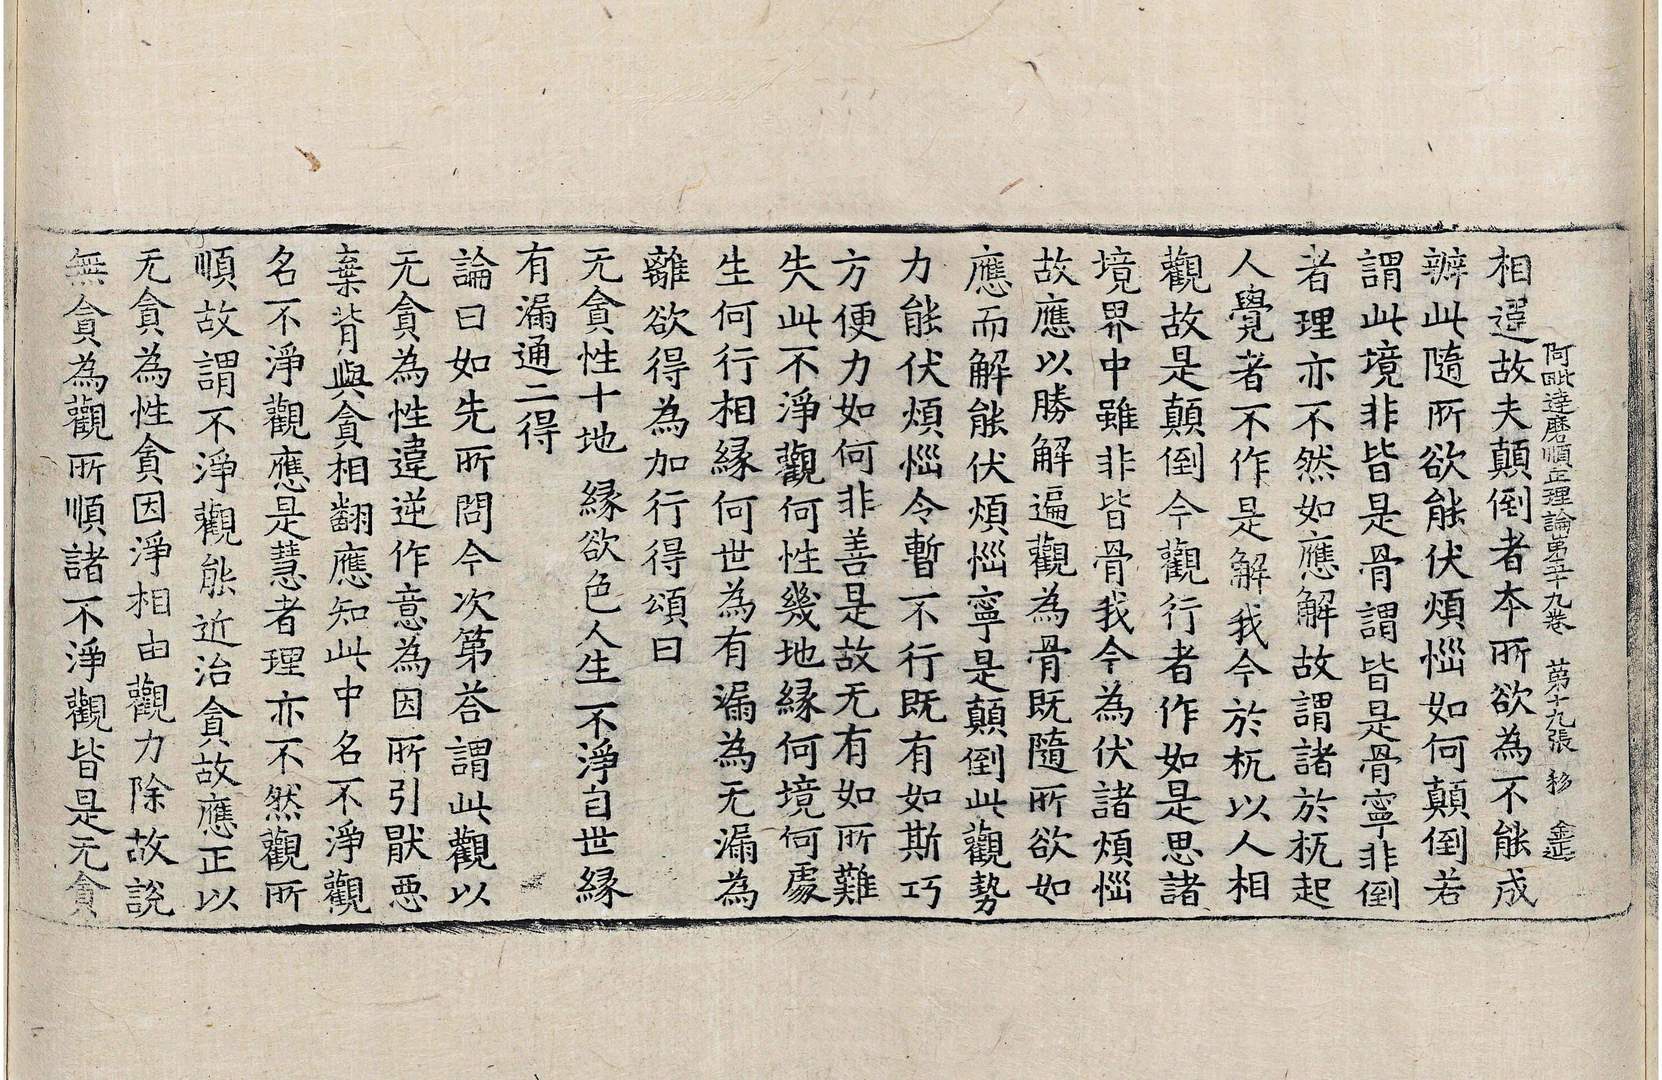 阿毗達磨順正理論第五十九卷 第十九張 移
相違故夫顛倒者本所欲為不能成
辦此隨所欲能伏煩惱如何顛倒若
謂此境非皆是骨謂皆是骨寧非倒
者理亦不然如應解故謂諸於杌起
人覺者不作是解我今於杌以人相
觀故是顛倒今觀行者作如是思諸
境界中雖非皆骨我今為伏諸煩惱
故應以勝解遍觀為骨既隨所欲如
應而解能伏煩惱寧是顛倒此觀勢
力能伏煩惱令暫不行既有如斯巧
方便力如何非善是故无有如所難
失此不淨觀何性幾地緣何境何處
生何行相緣何世為有漏為无漏為
離欲得為加行得頌曰
无貪性十地 緣欲色人生 不淨自世緣
有漏通二得
論曰如先所問今次第荅謂此觀以
无貪為性違逆作意為因所引猒惡
棄背與貪相翻應知此中名不淨觀
名不淨觀應是慧者理亦不然觀所
順故謂不淨觀能近治貪故應正以
无貪為性貪因淨相由觀力除故說
無貪為觀所順諸不淨觀皆是无貪